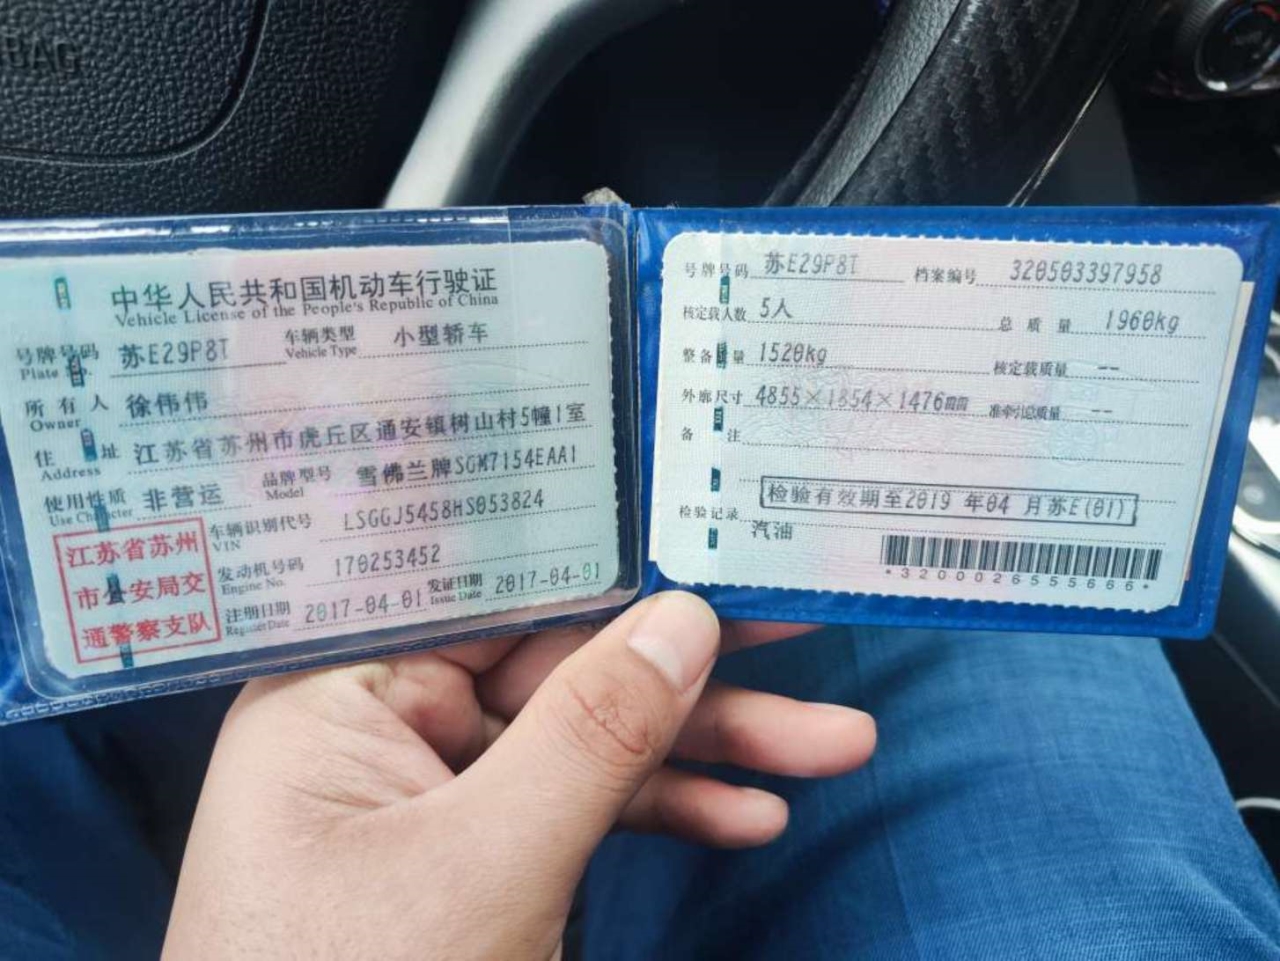 BAG
中华人民共和国机动车行驶证
Vehicle License of the People's Republic of China
号牌号码 苏E29P8T 车辆类型 小型轿车
Plate No. Vehicle Type
所有人 徐伟伟
Owner
住址 江苏省苏州市虎丘区通安镇树山村5幢1室
Address
使用性质 非营运 品牌型号 雪佛兰牌SGM7154EAA1
Use Character Model
江苏省苏州
市公安局交
通警察支队
车辆识别代号 LSGGJ5458HS053824
VIN
发动机号码 170253452
Engine No.
注册日期 2017-04-01 发证日期 2017-04-01
Register Date Issue Date
号牌号码 苏E29P8T 档案编号 320503397958
核定载人数 5人 总质量 1960kg
整备质量 1520kg 核定载质量 --
外廓尺寸 4855×1854×1476mm 准牵引总质量 --
备注
检验有效期至2019 年04 月苏E(01)
检验记录
汽油
*3200026555666*